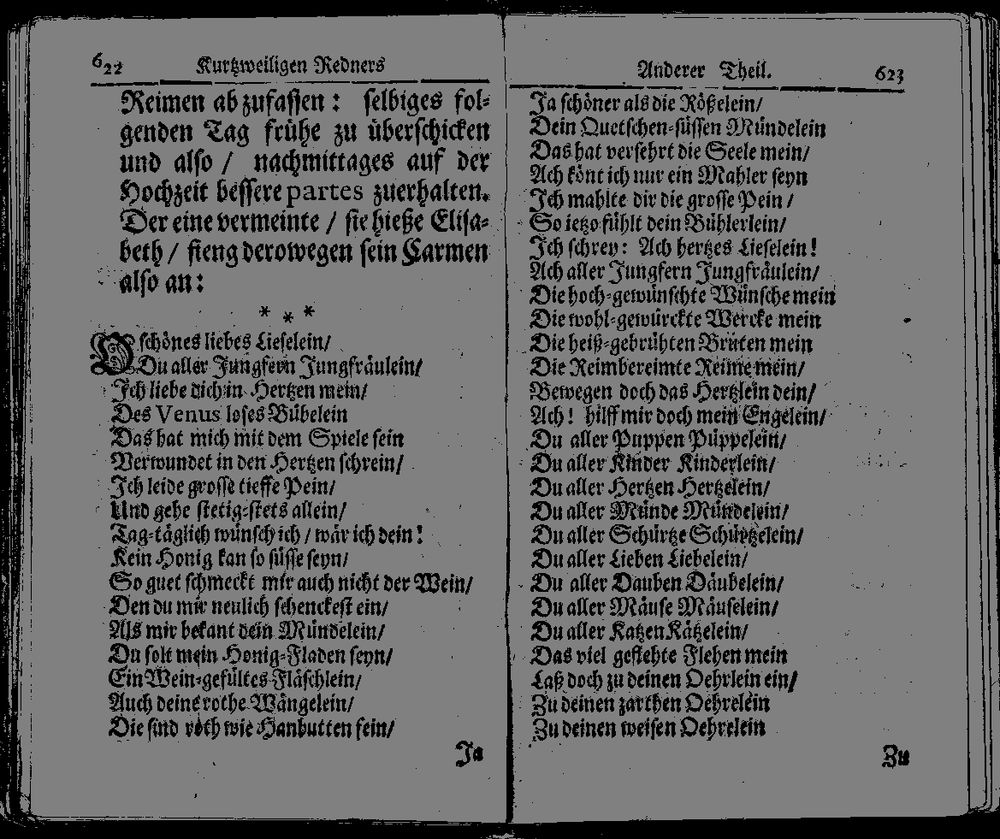 622 Kurtzweiligen Redners
Reimen abzufassen: selbiges fol-
genden Tag frühe zu überschicken
und also / nachmittages auf der
Hochzeit bessere partes zuerhalten.
Der eine vermeinte / sie hieße Elisa-
beth / fieng derowegen sein Carmen
also an:
* * *
O schönes liebes Lieselein/
Du aller Jungfern Jungfräulein/
Ich liebe dich in Hertzen mein/
Des Venus loses Bübelein
Das hat mich mit dem Spiele sein
Verwundet in den Hertzen schrein/
Ich leide grosse tieffe Pein/
Und gehe stetig-stets allein/
Tag-täglich wünsch ich / wär ich dein!
Kein Honig kan so süsse seyn/
So guet schmeckt mir auch nicht der Wein/
Den du mir neulich schenckest ein/
Als mir bekant dein Mündelein/
Du solt mein Honig-Fladen seyn/
Ein Wein-gefültes Fläschlein/
Auch deine rothe Wängelein/
Die sind roth wie Hanbutten fein/
Ja
Anderer Theil. 623
Ja schöner als die Rößelein/
Dein Quetschen-süssen Mündelein
Das hat versehrt die Seele mein/
Ach könt ich nur ein Mahler seyn
Ich mahlte dir die grosse Pein /
So ietzo fühlt dein Bühlerlein/
Ich schrey: Ach hertzes Lieselein!
Ach aller Jungfern Jungfräulein/
Die hoch-gewünschte Wünsche mein
Die wohl-gewürckte Wercke mein
Die heiß-gebrühten Brüten mein
Die Reimbereimte Reime mein/
Bewegen doch das Hertzlein dein/
Ach! hilff mir doch mein Engelein/
Du aller Puppen Püppelein/
Du aller Kinder Kinderlein/
Du aller Hertzen Hertzelein/
Du aller Münde Mündelein/
Du aller Schürtze Schürtzelein/
Du aller Lieben Liebelein/
Du aller Dauben Däubelein/
Du aller Mäuse Mäuselein/
Du aller Katzen Kätzelein/
Das viel geflehte Flehen mein
Laß doch zu deinen Oehrlein ein/
Zu deinen zarthen Oehrelein
Zu deinen weisen Oehrelein
Zu